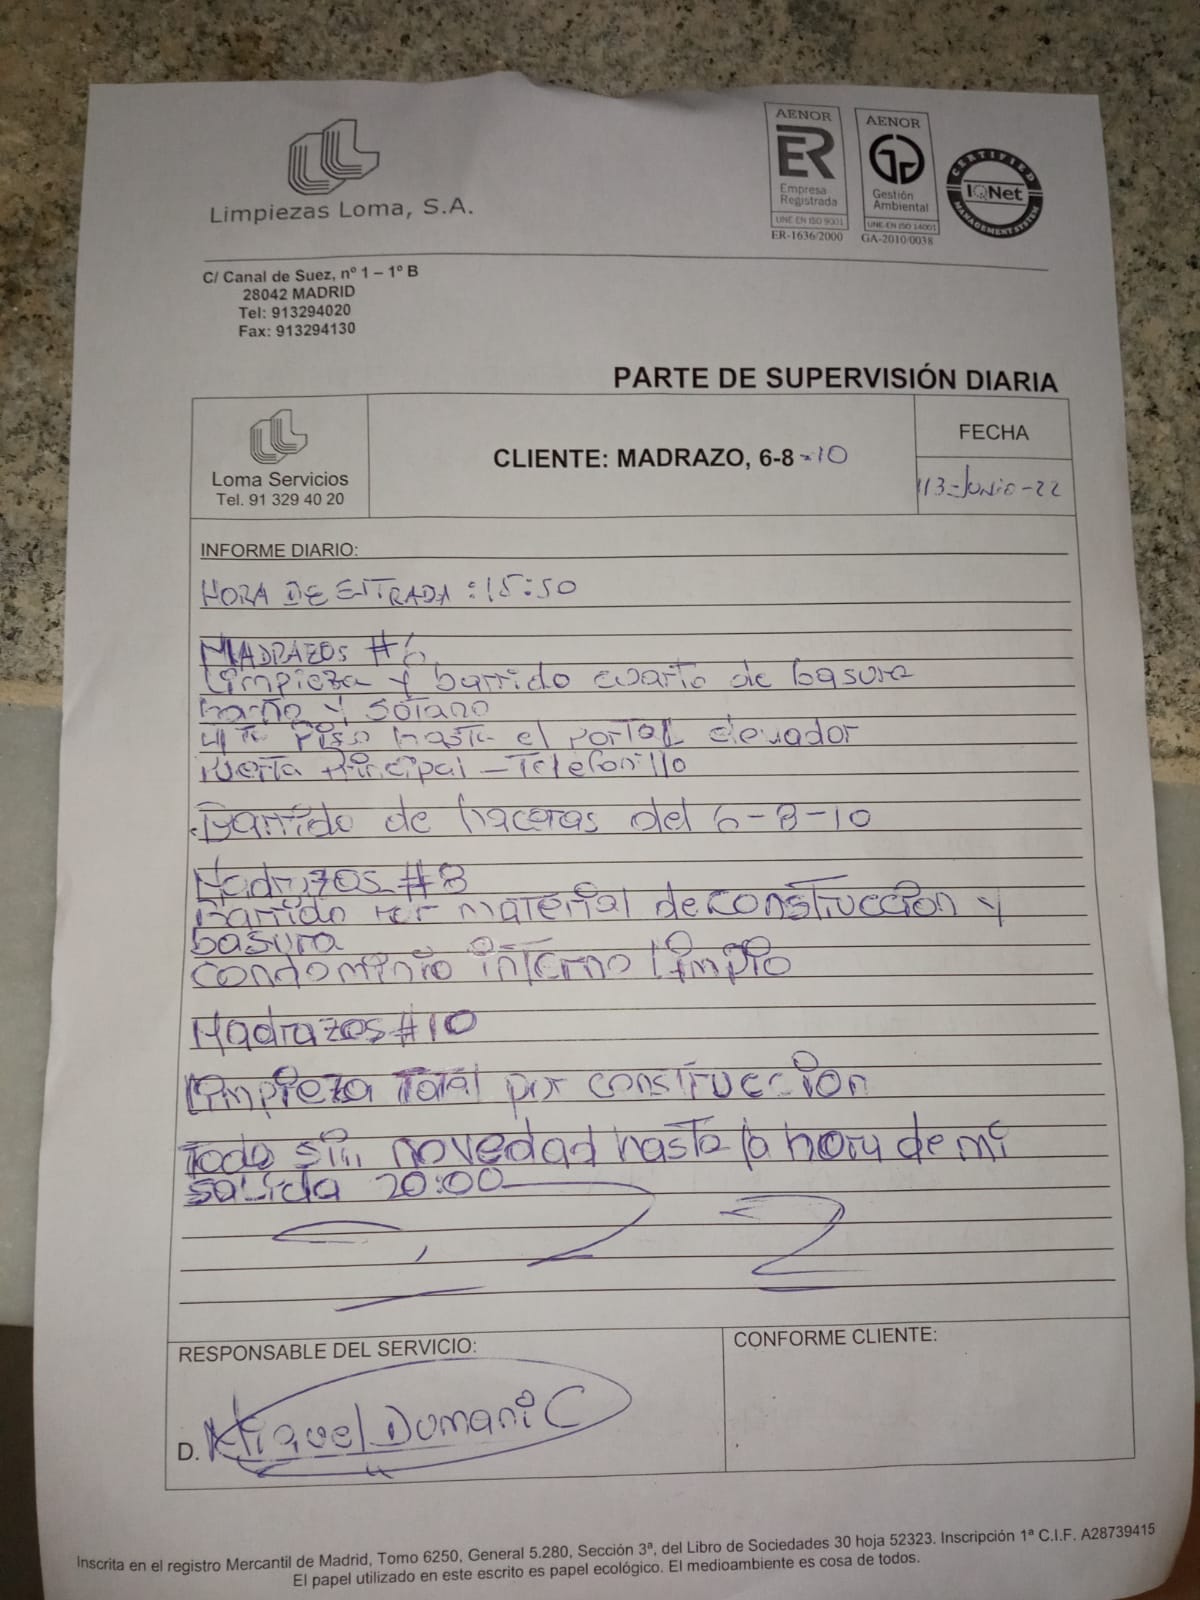 Limpiezas Loma, S.A.
AENOR
ER
Empresa
Registrada
UNE-EN ISO 9001
ER-1636/2000
AENOR
Gestión
Ambiental
UNE-EN ISO 14001
GA-2010/0038
CERTIFIED
IQNet
MANAGEMENT SYSTEM
C/ Canal de Suez, nº 1 – 1º B
28042 MADRID
Tel: 913294020
Fax: 913294130
PARTE DE SUPERVISIÓN DIARIA
Loma Servicios
Tel. 91 329 40 20
CLIENTE: MADRAZO, 6-8-10
FECHA
13-Junio-22
INFORME DIARIO:
HORA DE ENTRADA: 15:50
MADRAZOS #6
Limpieza y barrido cuarto de basura
baño y sotano
4to Piso hasta el portal elevador
Puerta Principal - Telefonillo
Barrido de haceras del 6-8-10
Madrazos #8
Barrido por material de construccion y
basura
condominio interno limpio
Madrazos #10
Limpieza Total por construccion
Todo sin novedad hasta la hora de mi
salida 20:00
RESPONSABLE DEL SERVICIO:
CONFORME CLIENTE:
D. Miguel Dumani C
Inscrita en el registro Mercantil de Madrid, Tomo 6250, General 5.280, Sección 3ª, del Libro de Sociedades 30 hoja 52323. Inscripción 1ª C.I.F. A28739415
El papel utilizado en este escrito es papel ecológico. El medioambiente es cosa de todos.